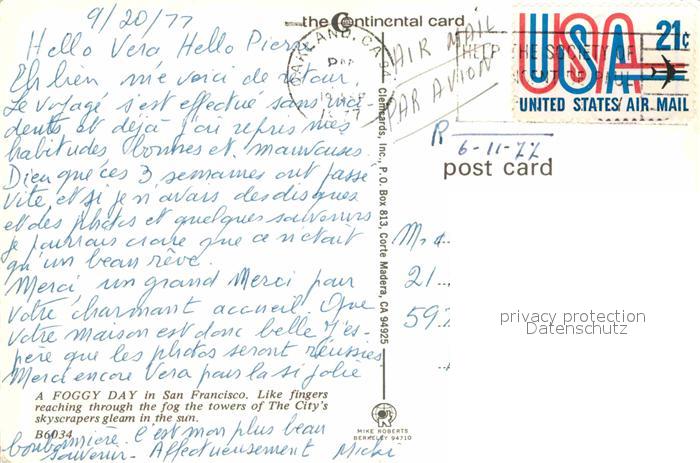 9/20/77
Hello Vera Hello Pierre
Eh bien me voici de retour
Le voyage s'est effectué sans inci-
dents et déjà j'ai repris mes
habitudes bonnes et mauvaises.
Dieu que ces 3 semaines ont passé
vite, et si je n'avais des disques
et des photos et quelques souvenirs
je pourrais croire que ce n'était
qu'un beau rêve.
Merci un grand Merci pour
votre charmant accueil. Que
votre maison est donc belle J'es-
père que les photos seront réussies
Merci encore Vera pour la si jolie
bonbonnière. C'est mon plus beau
souvenir - Affectueusement Micki
A FOGGY DAY in San Francisco. Like fingers
reaching through the fog the towers of The City's
skyscrapers gleam in the sun.
B6034
the Continental card
Clemcards, Inc., P.O. Box 813, Corte Madera, CA 94925
MIKE ROBERTS
BERKELEY 94710
OAKLAND, CA
PM
1977
AIR MAIL
PAR AVION
HELP THE SOCIETY OF
USA 21c
UNITED STATES AIR MAIL
R
6-11-77
post card
M
21
597
privacy protection
Datenschutz